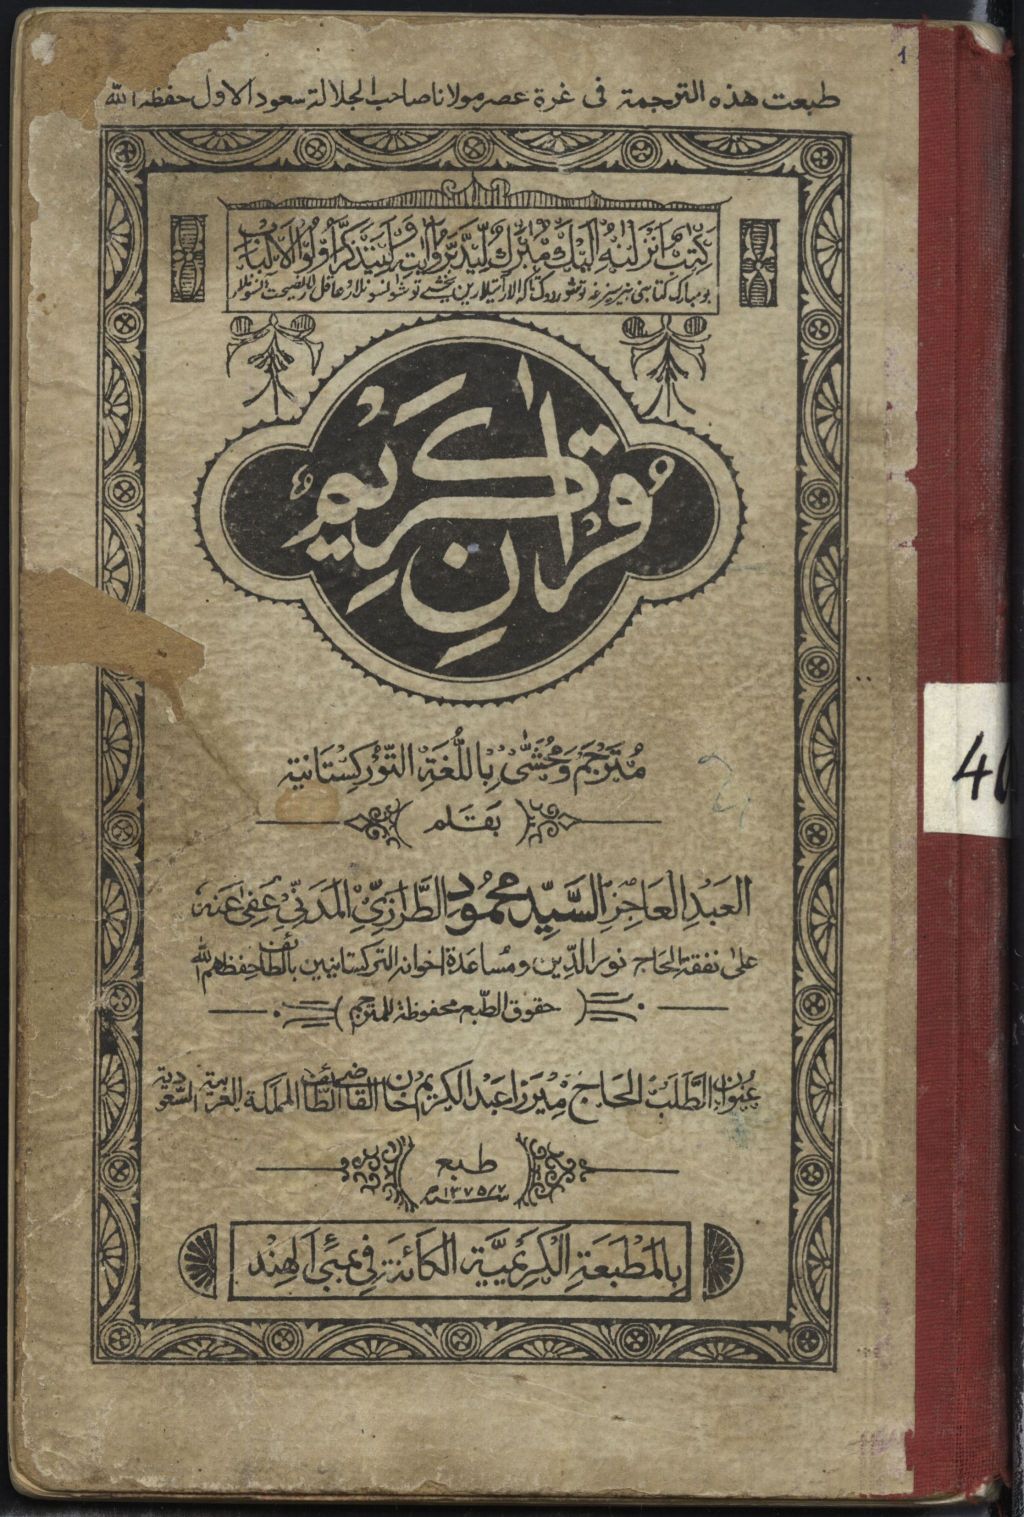 1
طبعت هذه الترجمة فى غرة عصر مولانا صاحب الجلالة سعود الاول حفظه الله
كِتٰبٌ اَنْزَلْنٰهُ اِلَيْكَ مُبٰرَكٌ لِّيَدَّبَّرُوْٓا اٰيٰتِهٖ وَلِيَتَذَكَّرَ اُولُوا الْاَلْبَابِ
بو مبارك كتابنى
قُرْاٰنِ كَرِيْمٌ
مُتَرْجَم وَمُحَشَّىٌ بِاللُّغَةِ التُّوْركِسْتَانِيَةِ
بَقَلم
العَبْدِ العَاجِزِ السَّيِّد محمُود الطَّرَازِيِّ المَدَنِيّ عَفىٰ عَنه
علىٰ نفقة الحاج نور الدّين ومُساعَدة اخوانه التركستانيين بالطائف حفظهم الله
حقوق الطّبع محفوظة للمترجم
عُنوان الطَّلَبْ الحَاج مِيْرزا عَبد الكريم خان القاضى الطَّائف المملكة العَربية السّعودية
طبع
سنة ١٣٧٥/٧م
بِالمَطْبَعَةِ الكَرِيْمِيَّةِ الكَائنَةِ فِى بَمبَئ الهِنْد
40